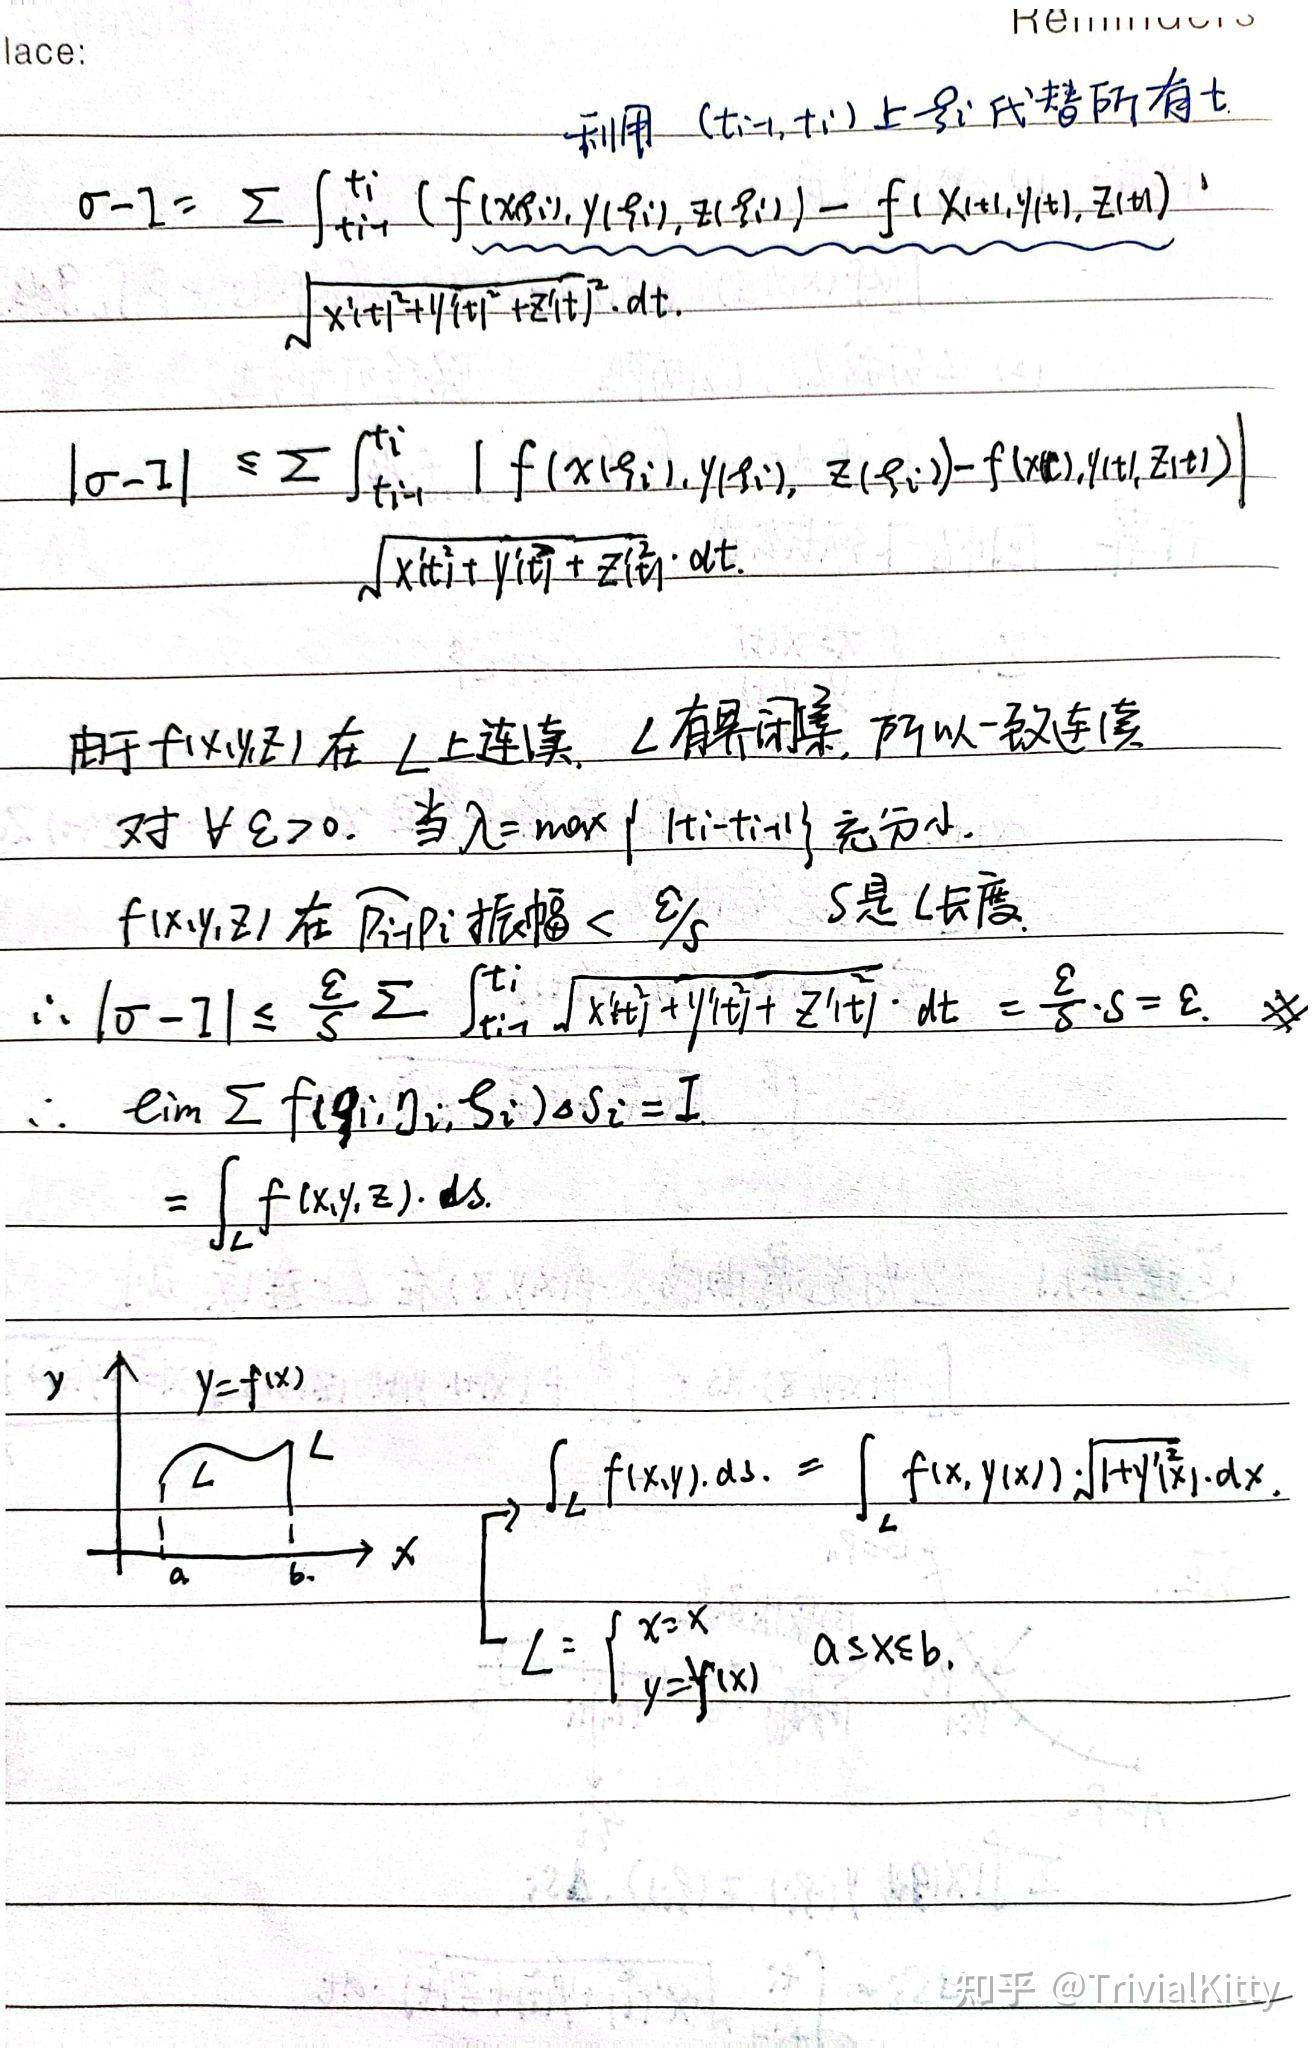 lace:
Reminders
利用 (ti-1, ti) 上 ξi 代替所有 t
σ-I = Σ ∫_{ti-1}^{ti} (f(x(ξi), y(ξi), z(ξi)) - f(x(t), y(t), z(t)) ·
√(x'(t)²+y'(t)²+z'(t)²) · dt.
|σ-I| ≤ Σ ∫_{ti-1}^{ti} | f(x(ξi), y(ξi), z(ξi)) - f(x(t), y(t), z(t)) |
√(x'(t)²+y'(t)²+z'(t)²) · dt.
由于 f(x,y,z) 在 L 上连续. L 有界闭集. 所以一致连续
对 ∀ ε>0. 当 λ=max{ |ti-ti-1| } 充分小.
f(x,y,z) 在 Pi-1Pi 振幅 < ε/S S是L长度.
∴ |σ-I| ≤ ε/S Σ ∫_{ti-1}^{ti} √(x'(t)²+y'(t)²+z'(t)²) · dt = ε/S · S = ε. ※
∴ lim Σ f(ξi, ηi, ζi) ΔSi = I.
= ∫_L f(x,y,z) · ds.
y
y=f(x)
L
L
a
b.
x
∫_L f(x,y). ds. = ∫_L f(x, y(x)) · √(1+y'(x)²) · dx.
L = { x=x
y=f(x)
a≤x≤b.
知乎 @TrivialKitty